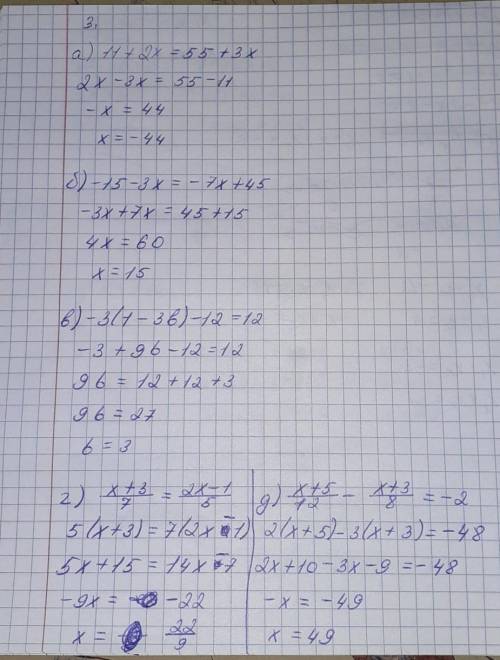 3.
а) 11 + 2x = 55 + 3x
2x - 3x = 55 - 11
-x = 44
x = -44
б) -15 - 3x = -7x + 45
-3x + 7x = 45 + 15
4x = 60
x = 15
в) -3(1 - 3в) - 12 = 12
-3 + 9в - 12 = 12
9в = 12 + 12 + 3
9в = 27
в = 3
г) (x+3)/7 = (2x-1)/5
5(x+3) = 7(2x-1)
5x + 15 = 14x - 7
-9x = -22
x = 22/9
д) (x+5)/12 - (x+3)/8 = -2
2(x+5) - 3(x+3) = -48
2x + 10 - 3x - 9 = -48
-x = -49
x = 49